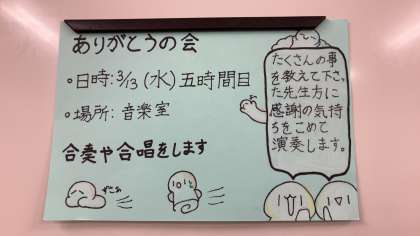 ありがとうの会
・日時:3/13(水)五時間目
・場所:音楽室
合奏や合唱をします
たくさんの事
を教えて下さっ
た先生方に
感謝の気持
ちをこめて
演奏します。